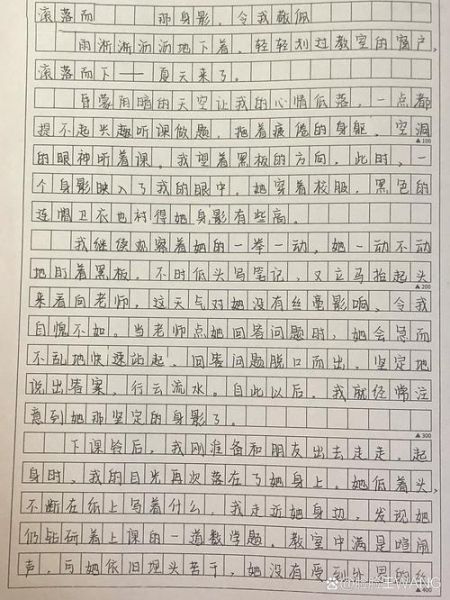 滚落而 那身影，令我敬佩
雨淅淅沥沥地下着，轻轻划过教室的窗户，
滚落而下——夏天来了。
昏蒙阴暗的天空让我的心情低落，一点都
提不起兴趣听课做题，拖着疲倦的身躯，空洞
的眼神听着课。我望着黑板的方向，此时，一
个身影映入了我的眼中。她穿着校服，黑色的
连帽卫衣也衬得她身影有些高。
我继续观察着她的一举一动，她一动不动
地盯着黑板，不时低头写笔记，又立马抬起头
来看向老师，这天气对她没有丝毫影响，令我
自愧不如。当老师点她回答问题时，她会急而
不乱地快速站起，回答问题脱口而出，坚定地
说出答案，行云流水。自此以后，我就经常注
意到她那坚定的身影了。
下课铃后，我刚准备和朋友出去走走，起
身时，我的目光再次落在了她身上。她低着头，
不断在纸上写着什么，我走近她身边，发现她
仍钻研着上课的一道数学题。教室中满是喧闹
声，可她依旧埋头苦干，她没有受到外界的丝
▲100
▲200
▲300
▲400
王WANG